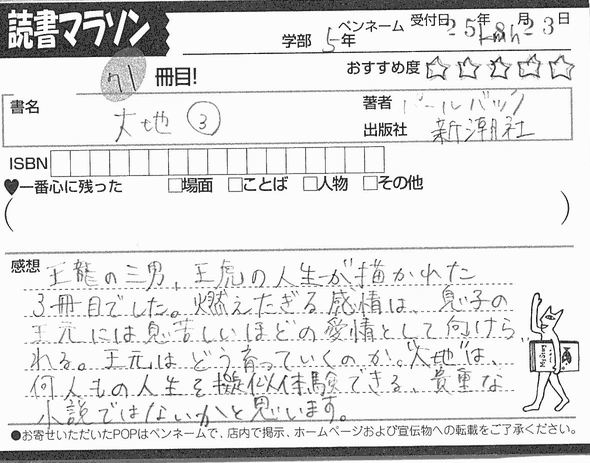 読書マラソン
学部 5年 ペンネーム 受付日 25年 月23日
71 冊目!
おすすめ度 ☆☆☆☆☆
書名 大地③
著者 パールバック
出版社 新潮社
ISBN
♥一番心に残った □場面 □ことば □人物 □その他
( )
感想 王龍の三男、王虎の人生が描かれた
3冊目でした。燃えたぎる感情は、息子の
王元には息苦しいほどの愛情として向けら
れる。王元はどう育っていくのか。"大地"は、
何人もの人生を擬似体験できる、貴重な
小説ではないかと思います。
●お寄せいただいたPOPはペンネームで、店内で掲示、ホームページおよび宣伝物への転載をご了承ください。